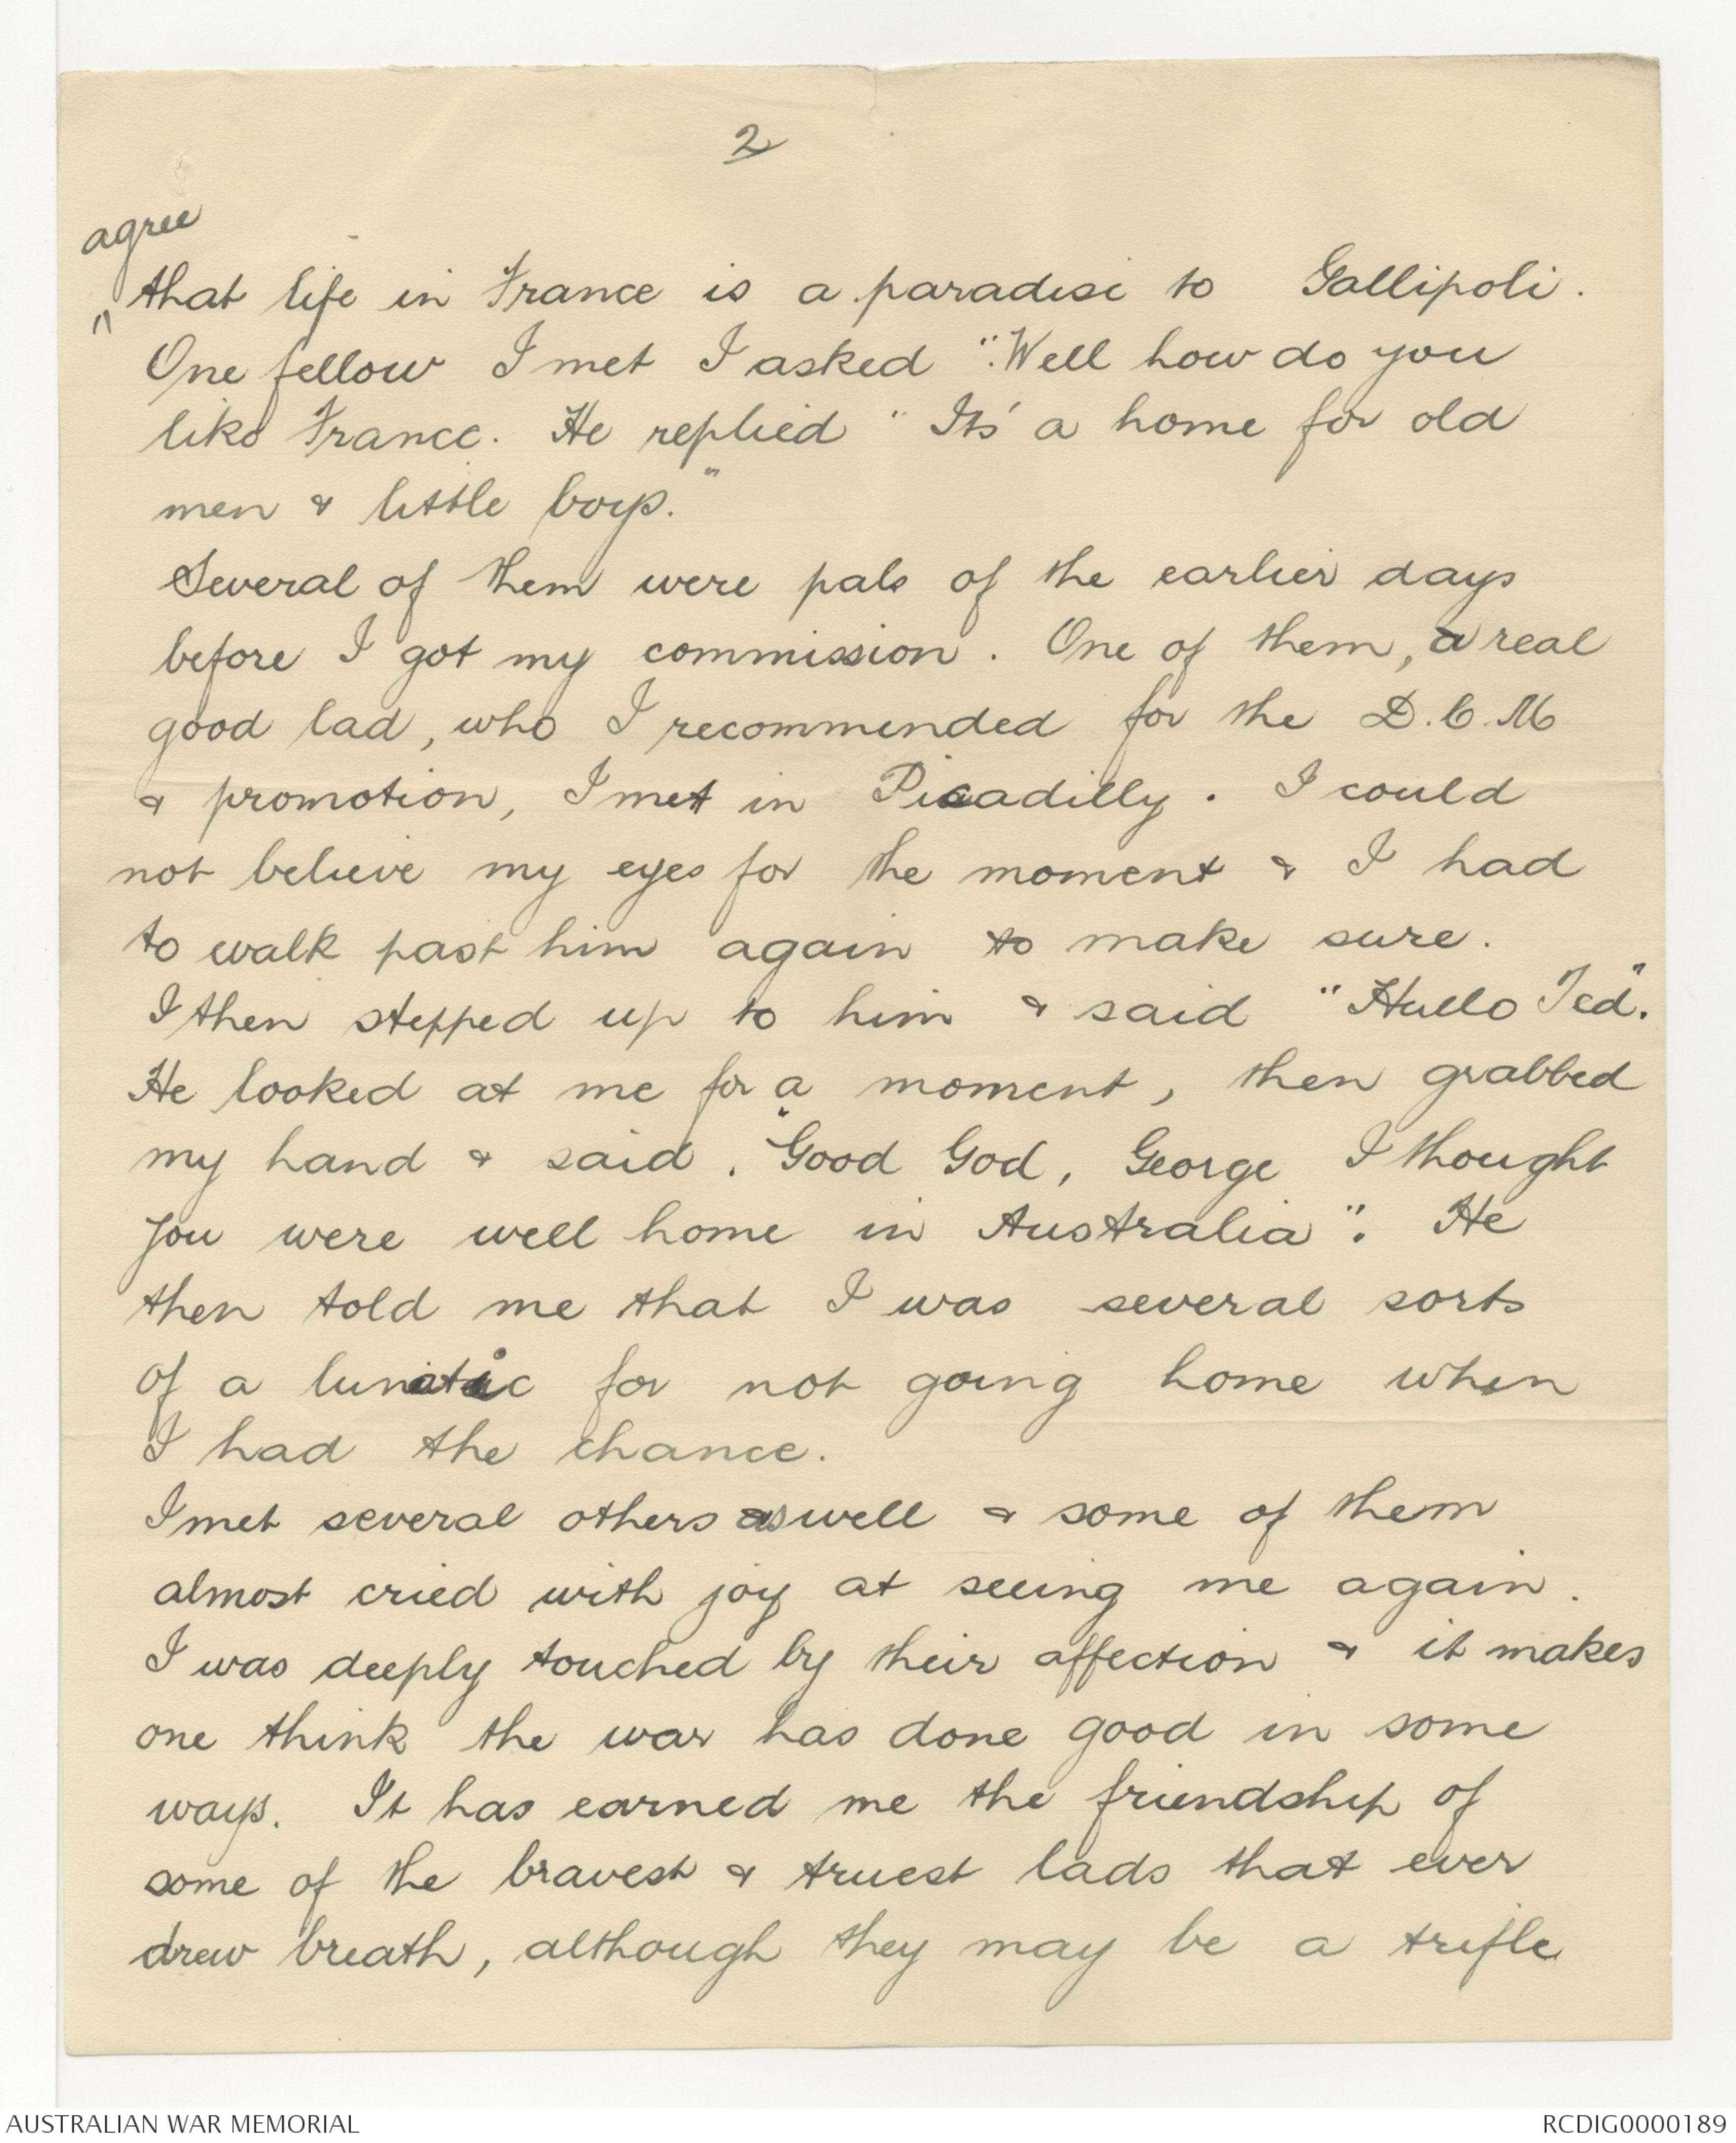 2
agree
" that life in France is a paradise to Gallipoli.
One fellow I met I asked ". Well how do you
like France. He replied " Its' a home for old
men & little boys."
Several of them were pals of the earlier days
before I got my commission. One of them, a real
good lad, who I recommended for the D.C.M
& promotion, I met in Picadilly. I could
not believe my eyes for the moment & I had
to walk past him again to make sure.
I then stepped up to him & said "Hullo Ted".
He looked at me for a moment, then grabbed
my hand & said. "Good God, George I thought
you were well home in Australia". He
then told me that I was several sorts
of a lunatic for not going home when
I had the chance.
I met several others as well & some of them
almost cried with joy at seeing me again.
I was deeply touched by their affection & it makes
one think the war has done good in some
ways. It has earned me the friendship of
some of the bravest & truest lads that ever
drew breath, although they may be a trifle
AUSTRALIAN WAR MEMORIAL
RCDIG0000189